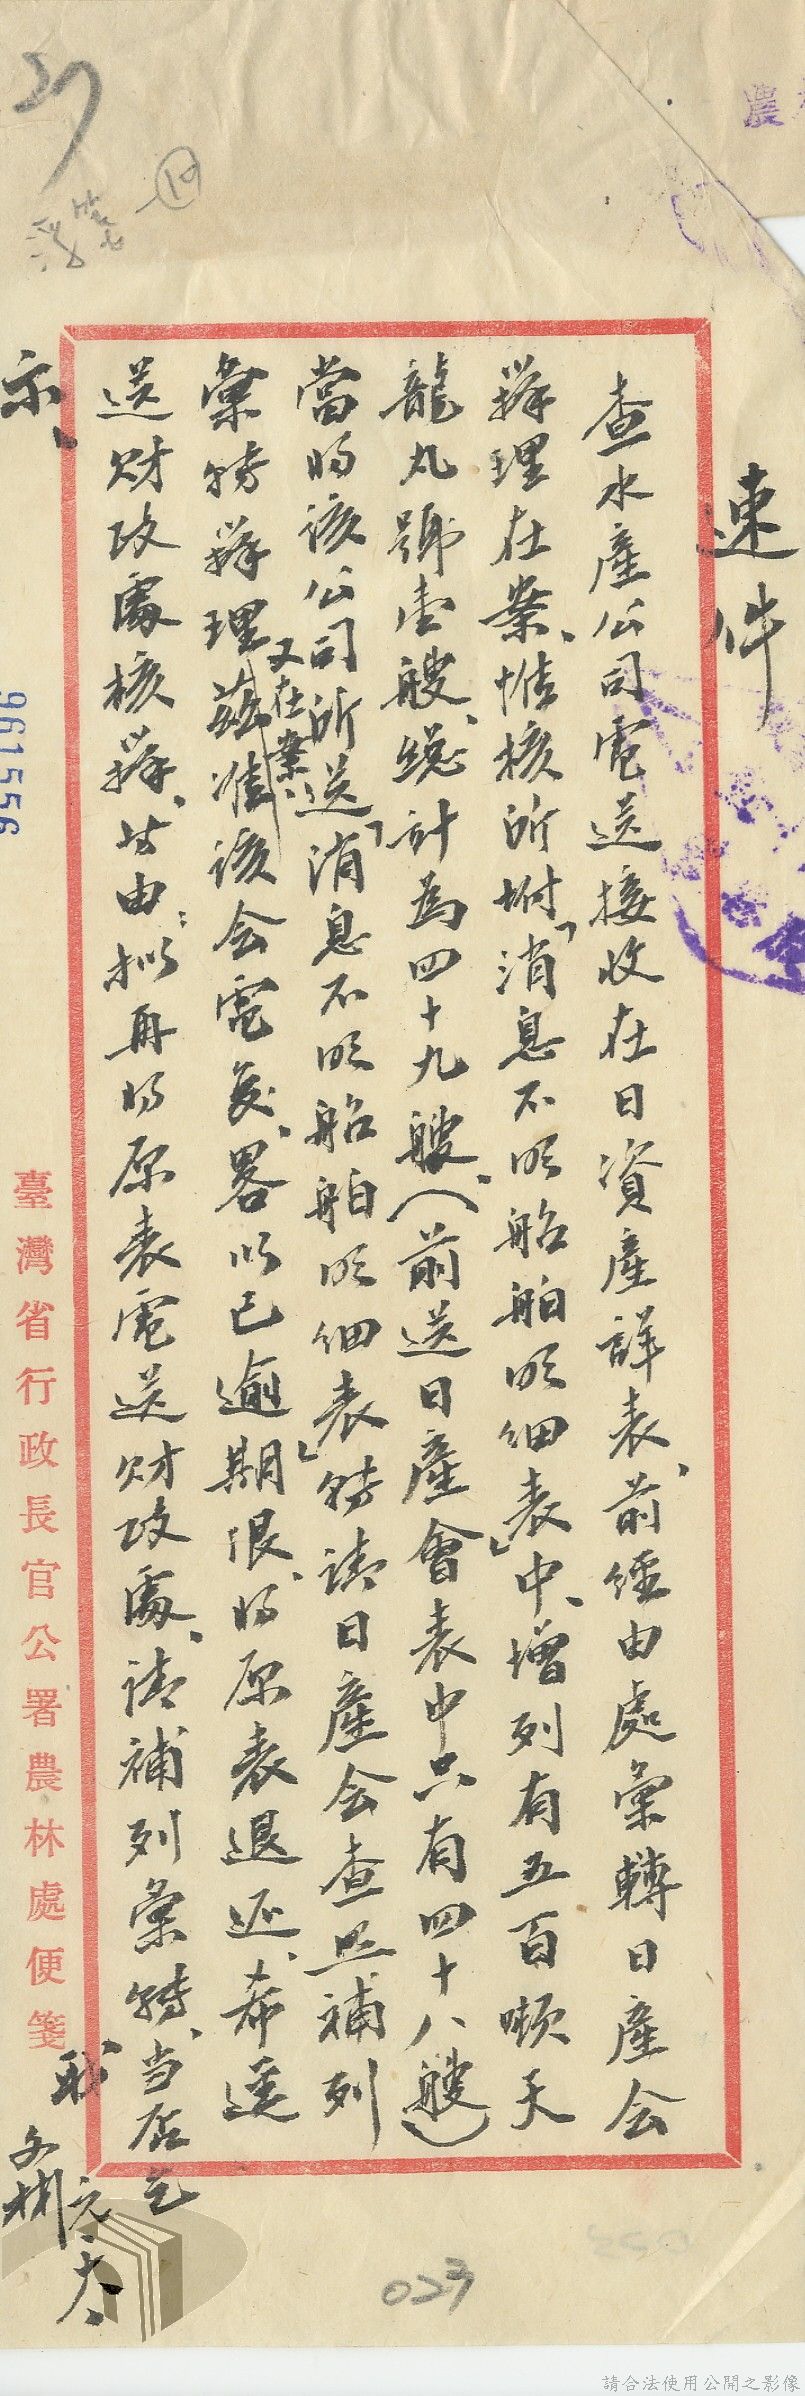 速件
查水產公司電送接收在日資產詳表、前經由處彙轉日產会
辦理在案、惟核所附「消息不明船舶明細表」中、增列有五百噸天
龍丸號壹艘、總計為四十九艘、(前送日產會表中只有四十八艘)
當將該公司所送「消息不明船舶明細表」轉請日產会查照補列
彙轉辦理又在案、茲准該会電复、畧以已逾期限、将原表退还、希逕
送财政處核辦、等由：擬再将原表電送财政處、請補列彙轉、当否乞
示、
臺灣省行政長官公署農林處便箋
023
961556
27
請合法使用公開之影像